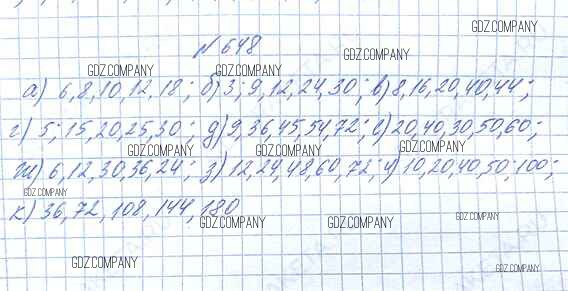 № 648
а) 6,8,10,12,18; б) 3; 9,12,24,30; в) 8,16,20,40,44;
г) 5; 15,20,25,30; д) 9,36,45,54,72; е) 20,40,30,50,60;
ж) 6,12,30,36,24; з) 12,24,48,60,72; и) 10,20,40,50,100;
к) 36,72,108,144,180
GDZ.COMPANY
GDZ.COMPANY
GDZ.COMPANY
GDZ.COMPANY
GDZ.COMPANY
GDZ.COMPANY
GDZ.COMPANY
GDZ.COMPANY
GDZ.COMPANY
GDZ.COMPANY
GDZ.COMPANY
GDZ.COMPANY
GDZ.COMPANY